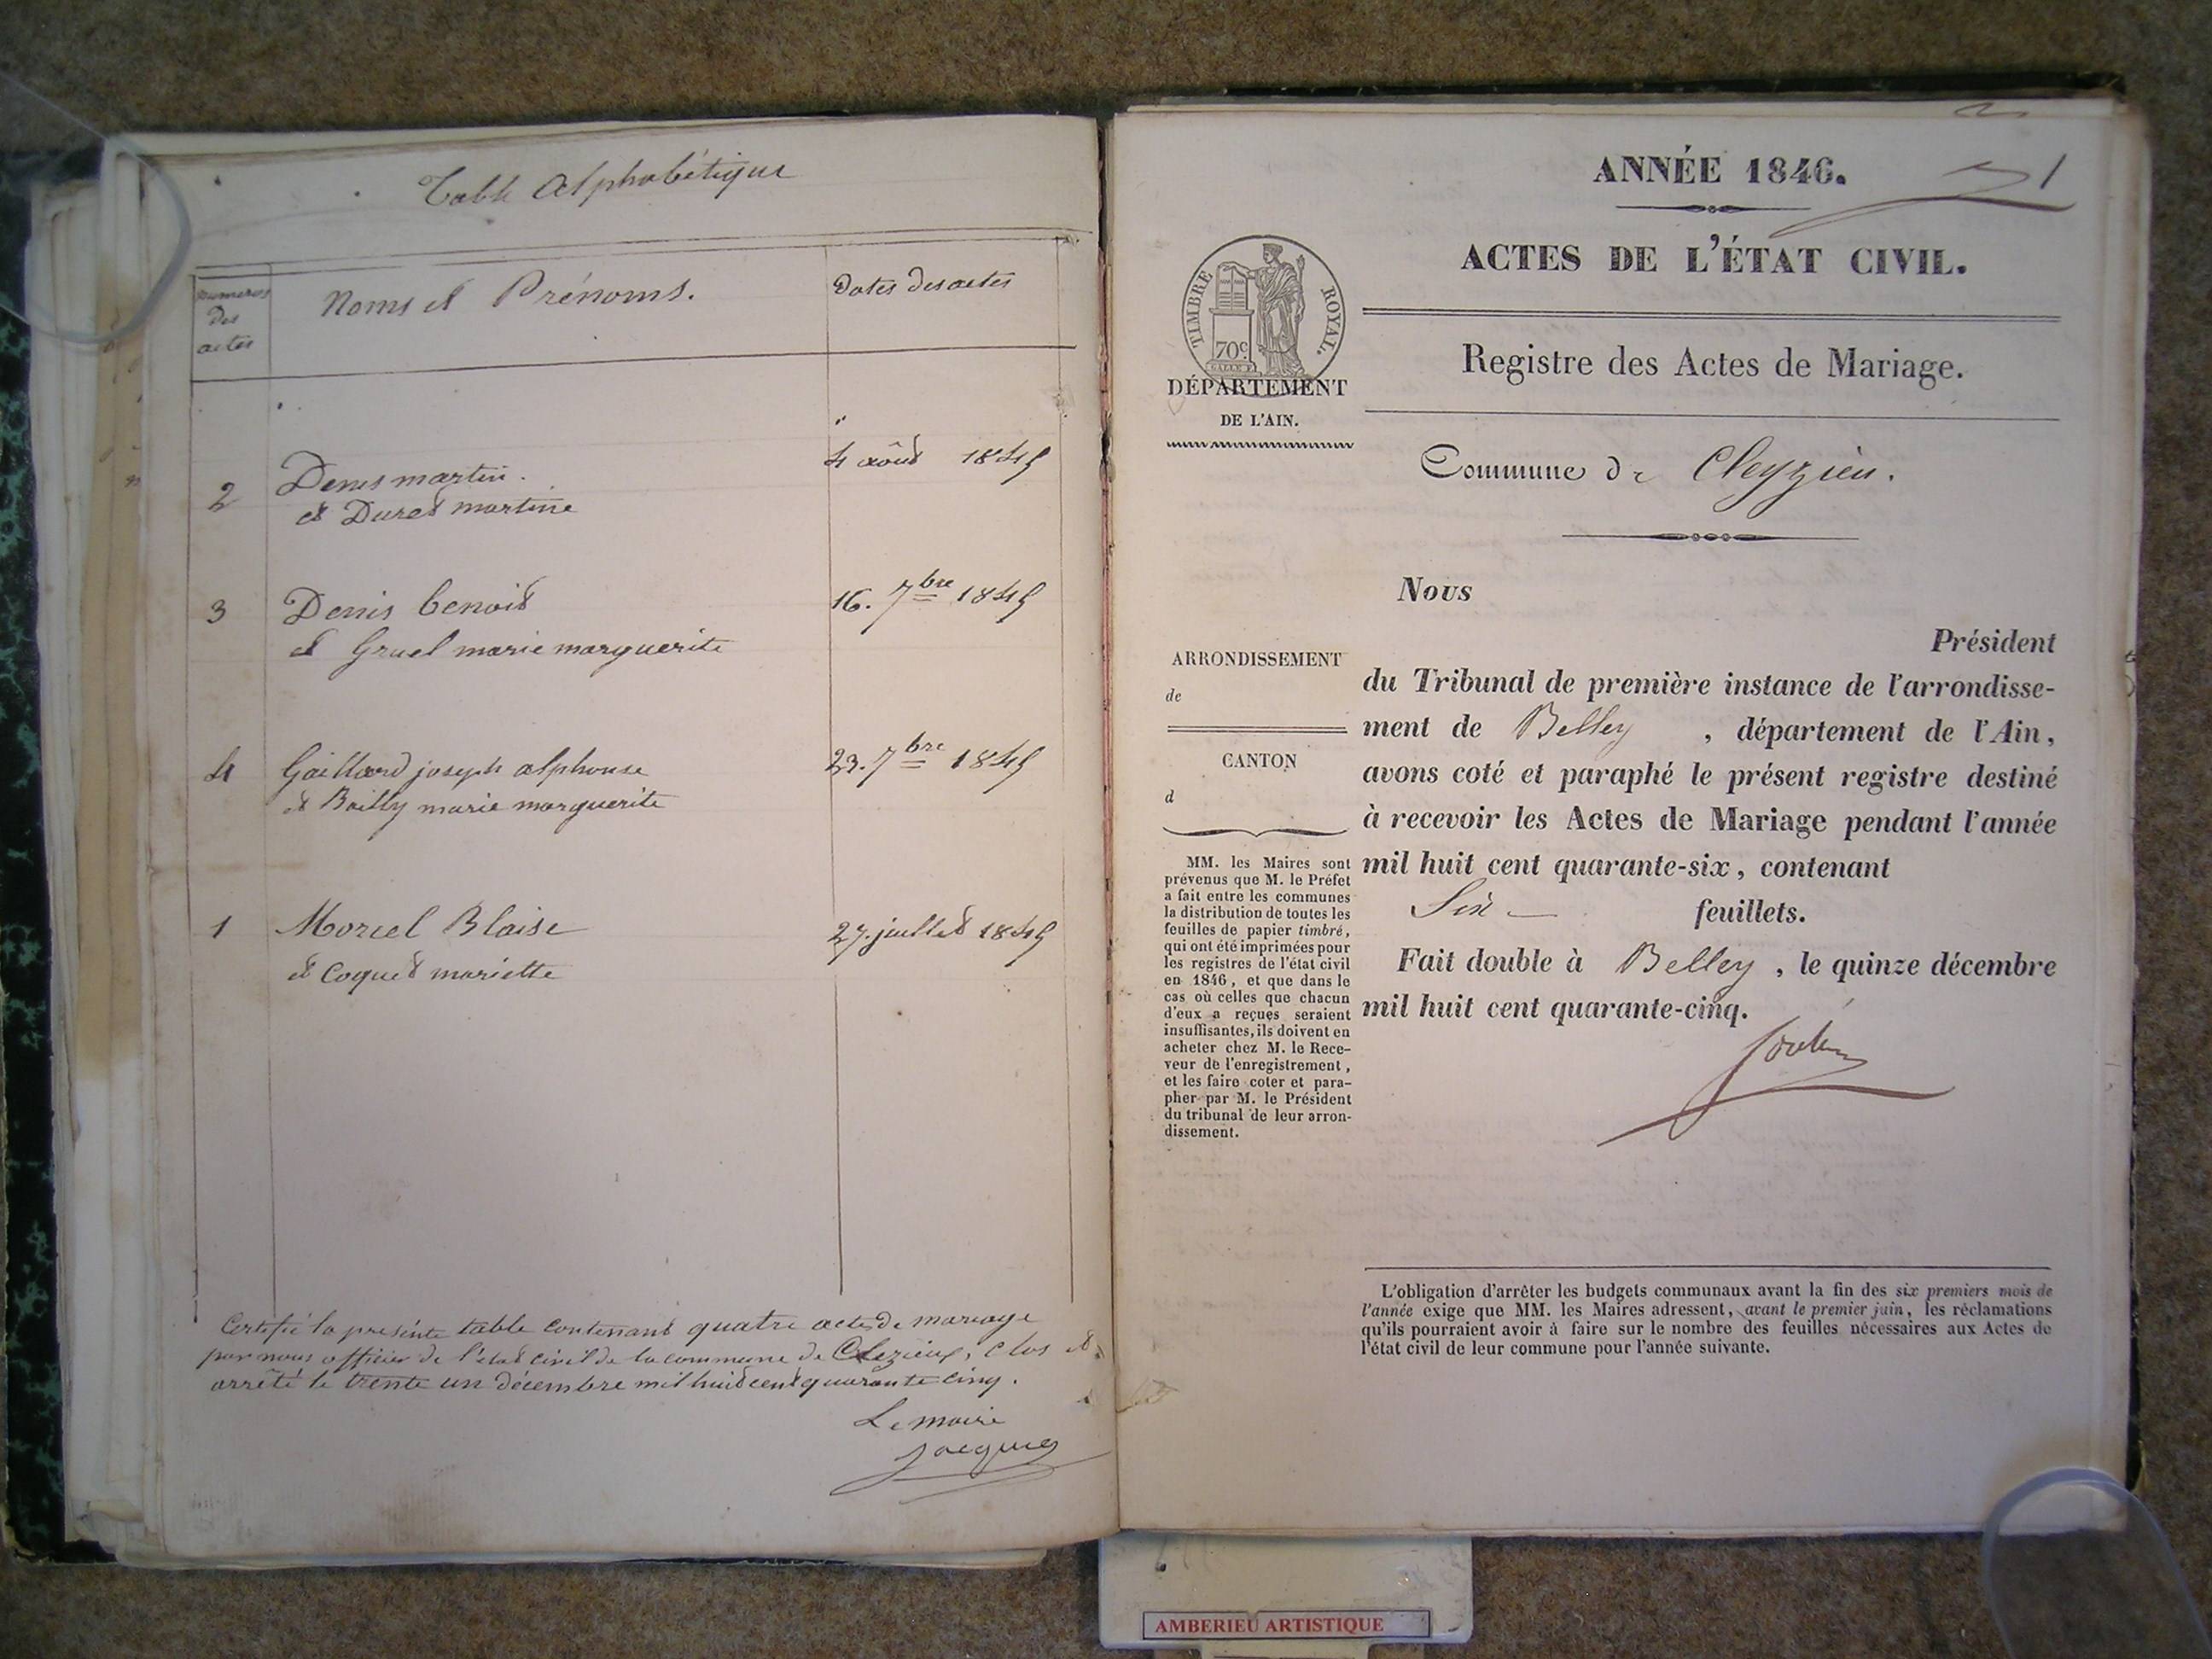 Table Alphabétique
numeros
des
actes
Noms et Prénoms.
Dates des actes
2
Denis martin.
et Duret martine
4 août 1845
3
Denis benoit
et Gruel marie marguerite
16. 7bre 1845
4
Gaillard joseph alphonse
et Bailly marie marguerite
23. 7bre 1845
1
Morcel Blaise
et Coquet mariette
27. juillet 1845
Certifié la présente table contenant quatre actes de mariage
par nous officier de l'état civil de la commune de Clezieux, clos et
arrêté le trente un décembre mil huit cent quarante cinq.
Le maire
Jacques
ANNÉE 1846.
1
ACTES DE L'ÉTAT CIVIL.
TIMBRE ROYAL.
70c
GALLE F.
DÉPARTEMENT
DE L'AIN.
Registre des Actes de Mariage.
Commune de Cleyzieu.
Nous
Président
du Tribunal de première instance de l'arrondisse-
ment de Belley , département de l'Ain,
avons coté et paraphé le présent registre destiné
à recevoir les Actes de Mariage pendant l'année
mil huit cent quarante-six, contenant
Six feuillets.
Fait double à Belley, le quinze décembre
mil huit cent quarante-cinq.
ARRONDISSEMENT
de
CANTON
d
MM. les Maires sont
prévenus que M. le Préfet
a fait entre les communes
la distribution de toutes les
feuilles de papier timbré,
qui ont été imprimées pour
les registres de l'état civil
en 1846, et que dans le
cas où celles que chacun
d'eux a reçues seraient
insuffisantes, ils doivent en
acheter chez M. le Rece-
veur de l'enregistrement,
et les faire coter et para-
pher par M. le Président
du tribunal de leur arron-
dissement.
L'obligation d'arrêter les budgets communaux avant la fin des six premiers mois de
l'année exige que MM. les Maires adressent, avant le premier juin, les réclamations
qu'ils pourraient avoir à faire sur le nombre des feuilles nécessaires aux Actes de
l'état civil de leur commune pour l'année suivante.
AMBERIEU ARTISTIQUE